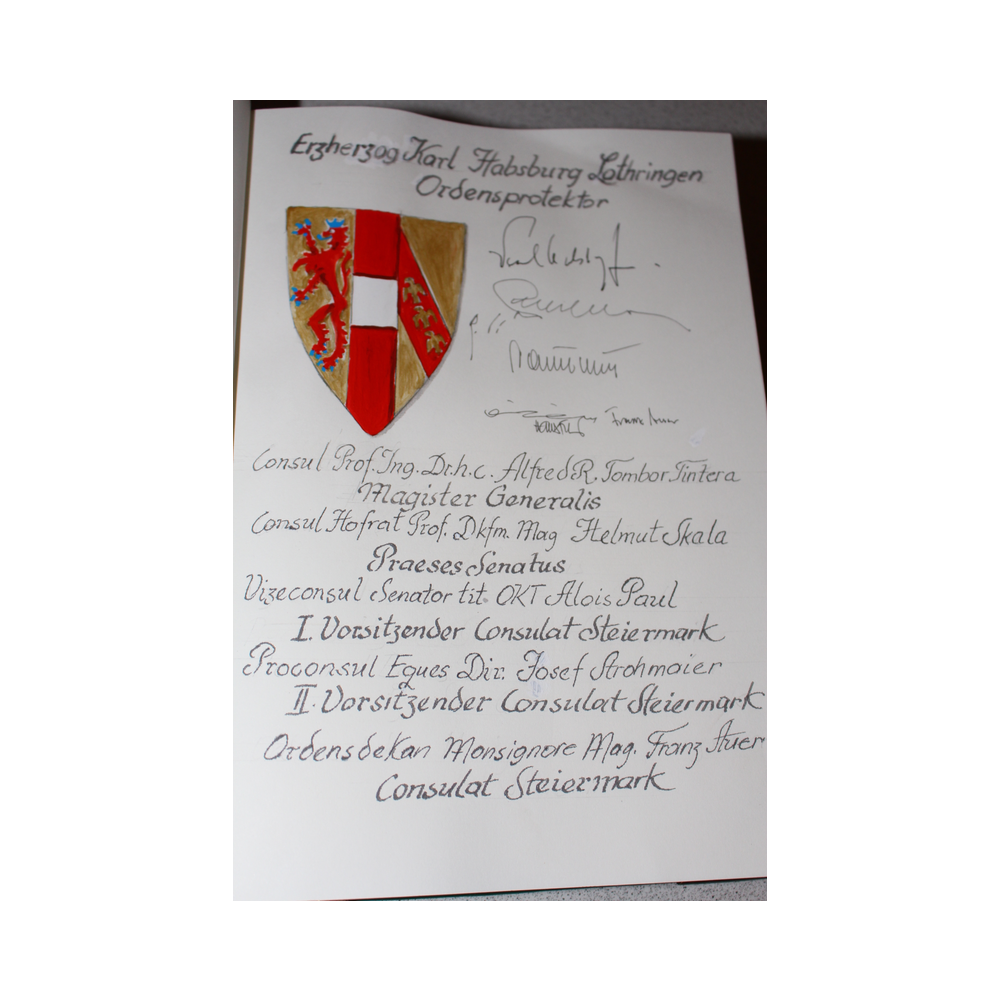 Erzherzog Karl Habsburg Lothringen
Ordensprotektor
Franz Auer
Consul Prof. Ing. Dr.h.c. Alfred R. Tombor Tintera
Magister Generalis
Consul Hofrat Prof. Dkfm. Mag Helmut Skala
Praeses Senatus
Vizeconsul Senator tit. OKT Alois Paul
I. Vorsitzender Consulat Steiermark
Proconsul Eques Dir. Josef Strohmaier
II. Vorsitzender Consulat Steiermark
Ordensdekan Monsignore Mag. Franz Auer
Consulat Steiermark